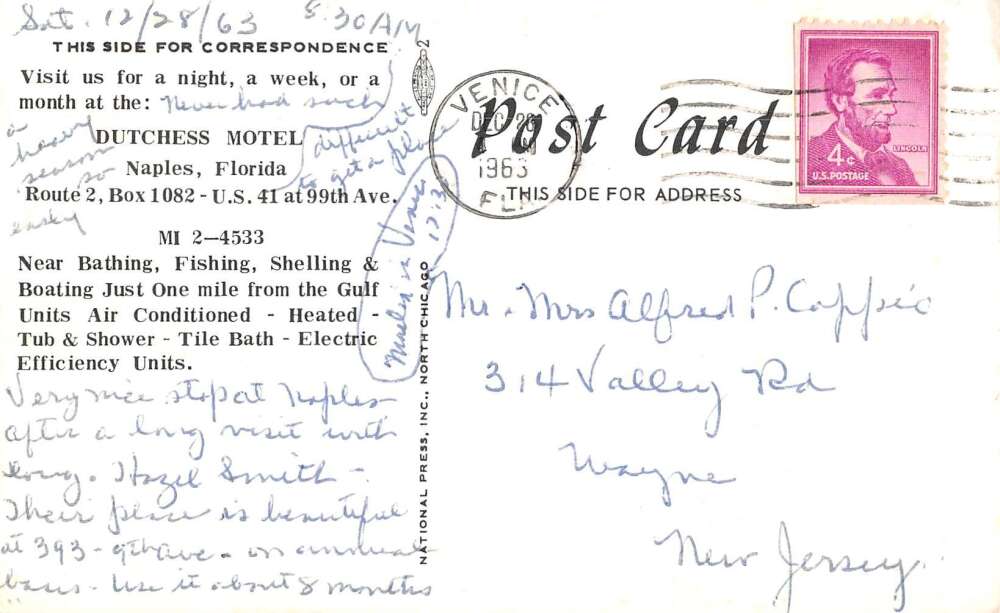 Sat. 12/28/63 8:30AM
THIS SIDE FOR CORRESPONDENCE
Visit us for a night, a week, or a
month at the: Never had such
a heavy
season
so
DUTCHESS MOTEL
difficult
to get a place
Naples, Florida
Route 2, Box 1082 - U.S. 41 at 99th Ave.
easily
MI 2-4533
Near Bathing, Fishing, Shelling &
Boating Just One mile from the Gulf
Units Air Conditioned - Heated -
Tub & Shower - Tile Bath - Electric
Efficiency Units.
Very nice stop at Naples
after a long visit with
Hazel Smith -
Their place is beautiful
at 393 - 9th Ave - on annual
basis - Use it about 8 months
in Venice
2
NATIONAL PRESS, INC., NORTH CHICAGO
VENICE
DEC 28
1963
FLA
Post Card
THIS SIDE FOR ADDRESS
LINCOLN
4¢
U.S. POSTAGE
Mr. Mrs Alfred P. Coppic
314 Valley Rd
Wayne
New Jersey